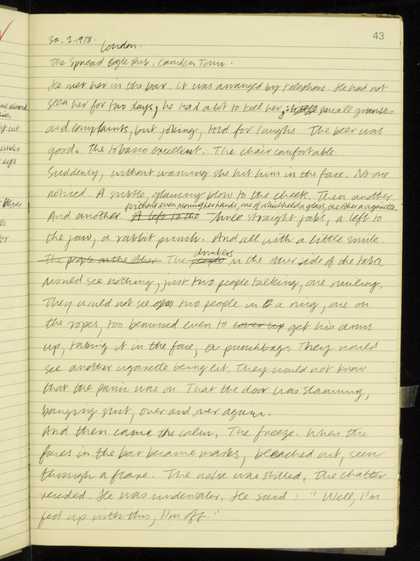 43
30.3.978.
London.
The Spread Eagle Pub. Camden Town.
He met her in the bar. It was arranged by telephone. He had not
seen her for two days, he had a lot to tell her, small grouses
and complaints, but joking, told for laughs. The beer was
good. The tobacco excellent. The chair comfortable.
Suddenly, without warning she hit him in the face. No one
noticed. A subtle, glancing blow to the cheek. Then another.
without even moving her hands, one of which held a glass, the other a cigarette
And another. A left to the Three straight jabs, a left to
the jaw, a rabbit punch. And all with a little smile.
drinkers
The people on the other The people in the other side of the table
would see nothing, just two people talking, one smiling.
They would not see two people in a ring, one on
the ropes, too bemused even to cover up get his arms
up, taking it in the face, a punchbag. They would
see another cigarette being lit. They would not know
that the panic was on. That the door was slamming,
banging shut, over and over again.
And then came the calm. The freeze. When the
faces in the bar became masks, bleached out, seen
through a flame. The noise was stilled, The chatter
receded. He was underwater. He said: "Well, I'm
fed up with this, I'm off"